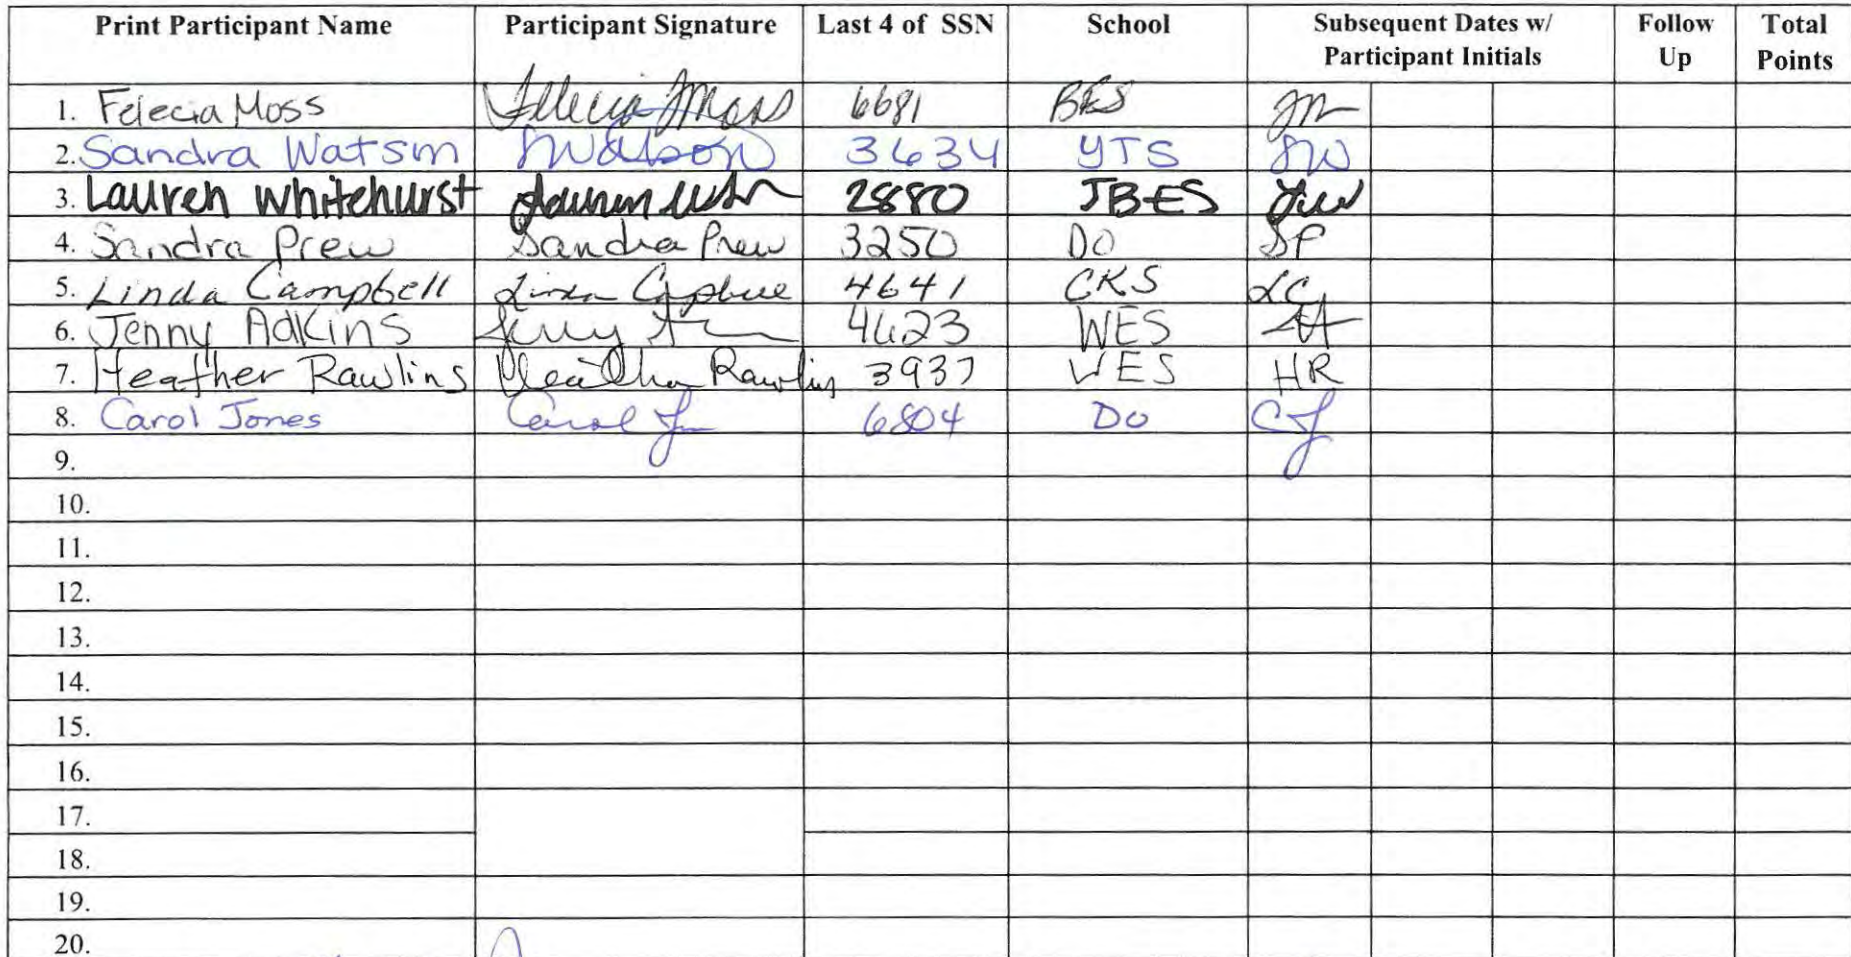 Print Participant Name Participant Signature Last 4 of SSN School Subsequent Dates w/ Participant Initials Follow Up Total Points
1. Felecia Moss Felecia Moss 6681 BES FM
2. Sandra Watson SWatson 3634 YTS SW
3. Lauren Whitehurst Lauren 2880 JBES LW
4. Sandra Prew Sandra Prew 3250 DO SP
5. Linda Campbell Linda Campbell 4641 CKS LC
6. Jenny Adkins Jenny 4623 WES JA
7. Heather Rawlins Heather Rawlins 3937 WES HR
8. Carol Jones Carol J 6804 DO CJ
9.
10.
11.
12.
13.
14.
15.
16.
17.
18.
19.
20.